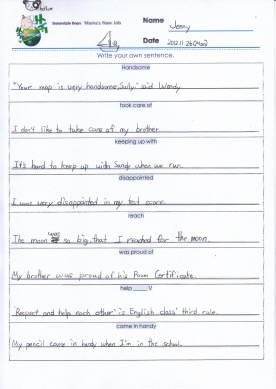 Mama's New Job
Name Jenny
Date 2012.11.26(Mon)
Write your own sentence.
Handsome
"Your map is very handsome, Sally," said Wendy.
took care of
I don't like to take care of my brother.
Keeping up with
It's hard to keep up with Sandy when we run.
disappointed
I was very disappointed in my test score.
reach
The moon was so big, that I reached for the moon.
was proud of
My brother was proud of his Poom Certificate.
help ____ V
'Respect and help each other' is English class' third rule.
came in handy
My pencil came in handy when I'm in the school.